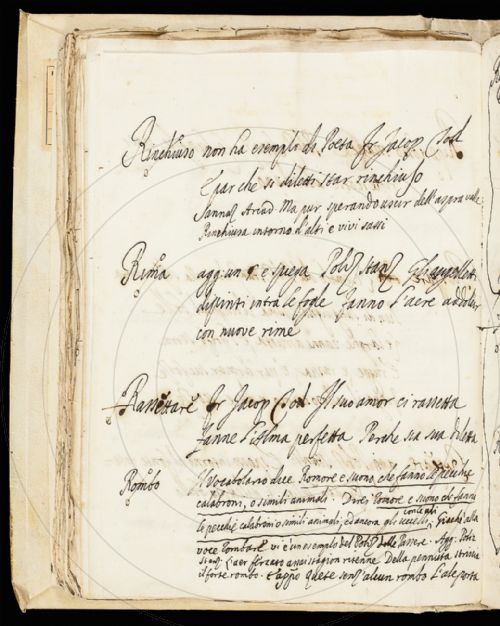 Rinchiuso non ha esempli di Poeta fr Jacop. Tod
E par che si diletti star rinchiuso
Sannaz Arcad. Ma pur sperando uscir dell'aspra valle
Rinchiusa intorno d'alti e vivi sassi
Rima agg. un e spesa Poliz Stanz Gli augelletti
dipinti intra le foglie Fanno l'aere addolcir
con nuove rime
Rassettare fr Jacop. Tod. Il suo amor ci rassetta
Fanne l'alma perfetta Perche sia sua diletta
Rombo Il Vocabolario dice Romore e suono, che fanno le pecchie
calabroni, o simili animali. Direi Romore e suono che fanno
le pecchie calabroni o simili animali, ed ancora gli uccelli
con le ali Giacchè alla
voce Rombare vi è un esemplo del Poliz delle Passere. Agg. Poliz
Stanz L'aer ferzato assai stagion ritenne Della pennuta striscia
il forte rombo. E appo Quete senz'alcun rombo L'ale porta